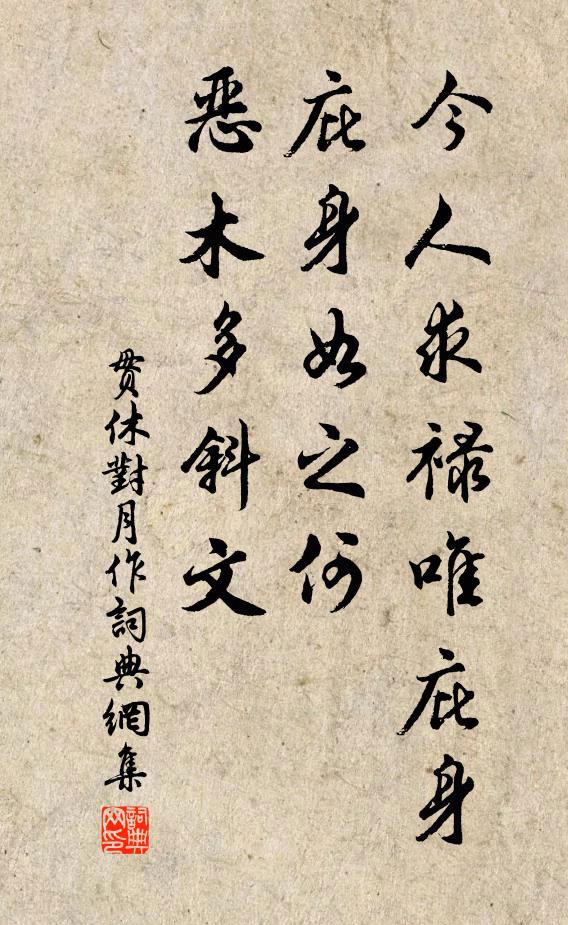 今人求禄唯庇身
庇身如之何
恶木多斜文
贯休對月作詞典網集
詞典网印